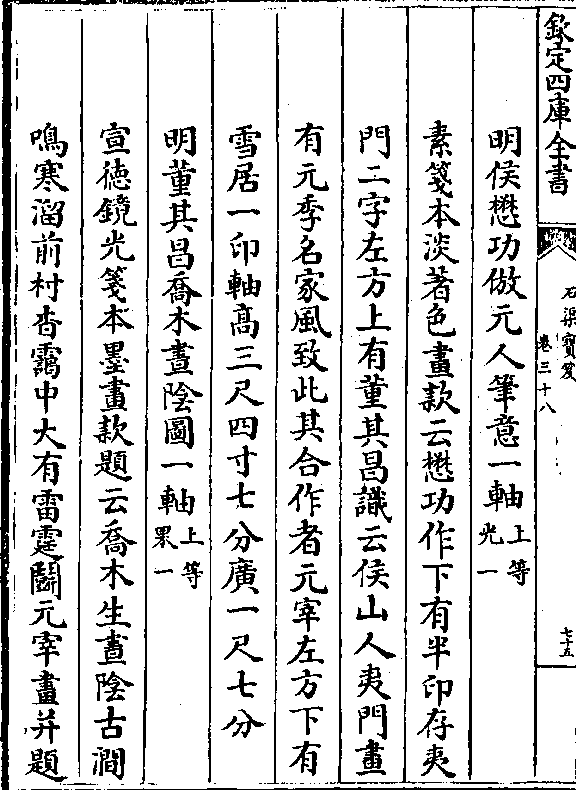 欽定四庫全書
石渠寳笈
卷三十八
七十五
明侯懋功倣元人筆意一軸上等光一
素箋本淡著色畫款云懋功作下有半印存夷
門二字左方上有董其昌識云侯山人夷門畫
有元季名家風致此其合作者元宰左方下有
雪居一印軸髙三尺四寸七分廣一尺七分
明董其昌喬木晝陰圖一軸上等累一
宣徳鏡光箋本墨畫款題云喬木生晝陰古澗
鳴寒溜前村杳靄中大有雷霆鬭元宰畫并題